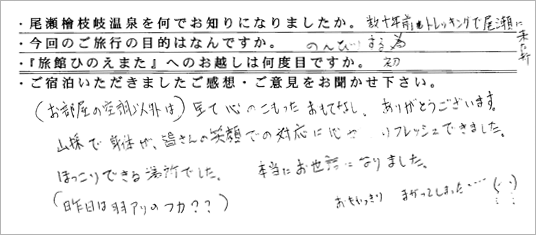 ・尾瀬檜枝岐温泉を何でお知りになりましたか。数十年前トレッキングで尾瀬に来た折
・今回のご旅行の目的はなんですか。のんびりする為
・『旅館ひのえまた』へのお越しは何度目ですか。初
・ご宿泊いただきましたご感想・ご意見をお聞かせ下さい。
(お部屋の空調以外は)全て心のこもったおもてなし、ありがとうございます。
山採で身体が、皆さんの笑顔での対応に心が リフレッシュできました。
ほっこりできる場所でした。 本当にお世話になりました。
(昨日は羽アリのフカ??) おもいっきり まがってしまった・・・・